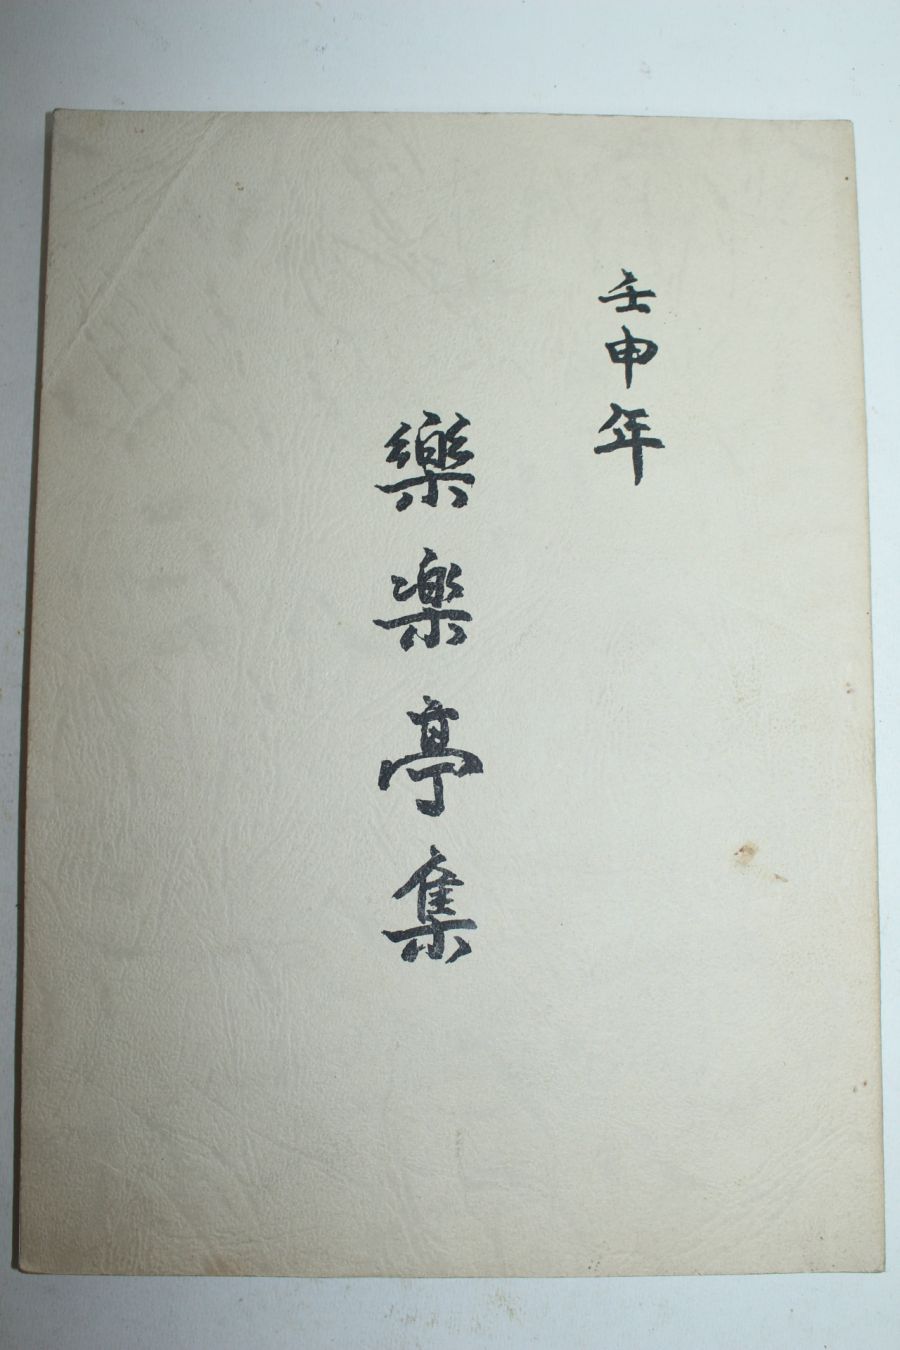 壬申年
樂楽亭集